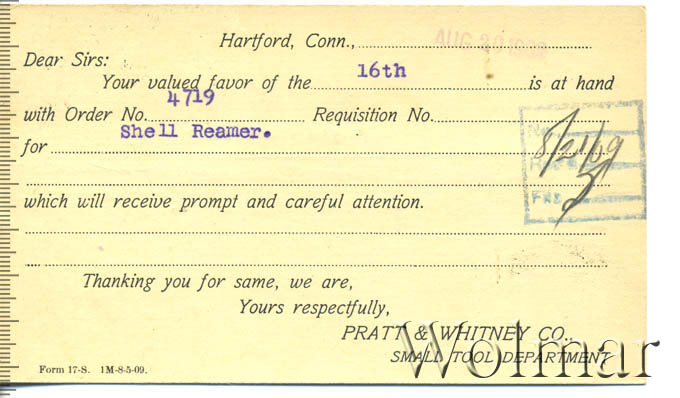 Hartford, Conn., AUG 20 1909
Dear Sirs:
Your valued favor of the 16th is at hand
with Order No. 4719 Requisition No.
for Shell Reamer.
8/21/09
which will receive prompt and careful attention.
Thanking you for same, we are,
Yours respectfully,
PRATT & WHITNEY CO.,
SMALL TOOL DEPARTMENT
Form 17-S. 1M-8-5-09.
Wolmar